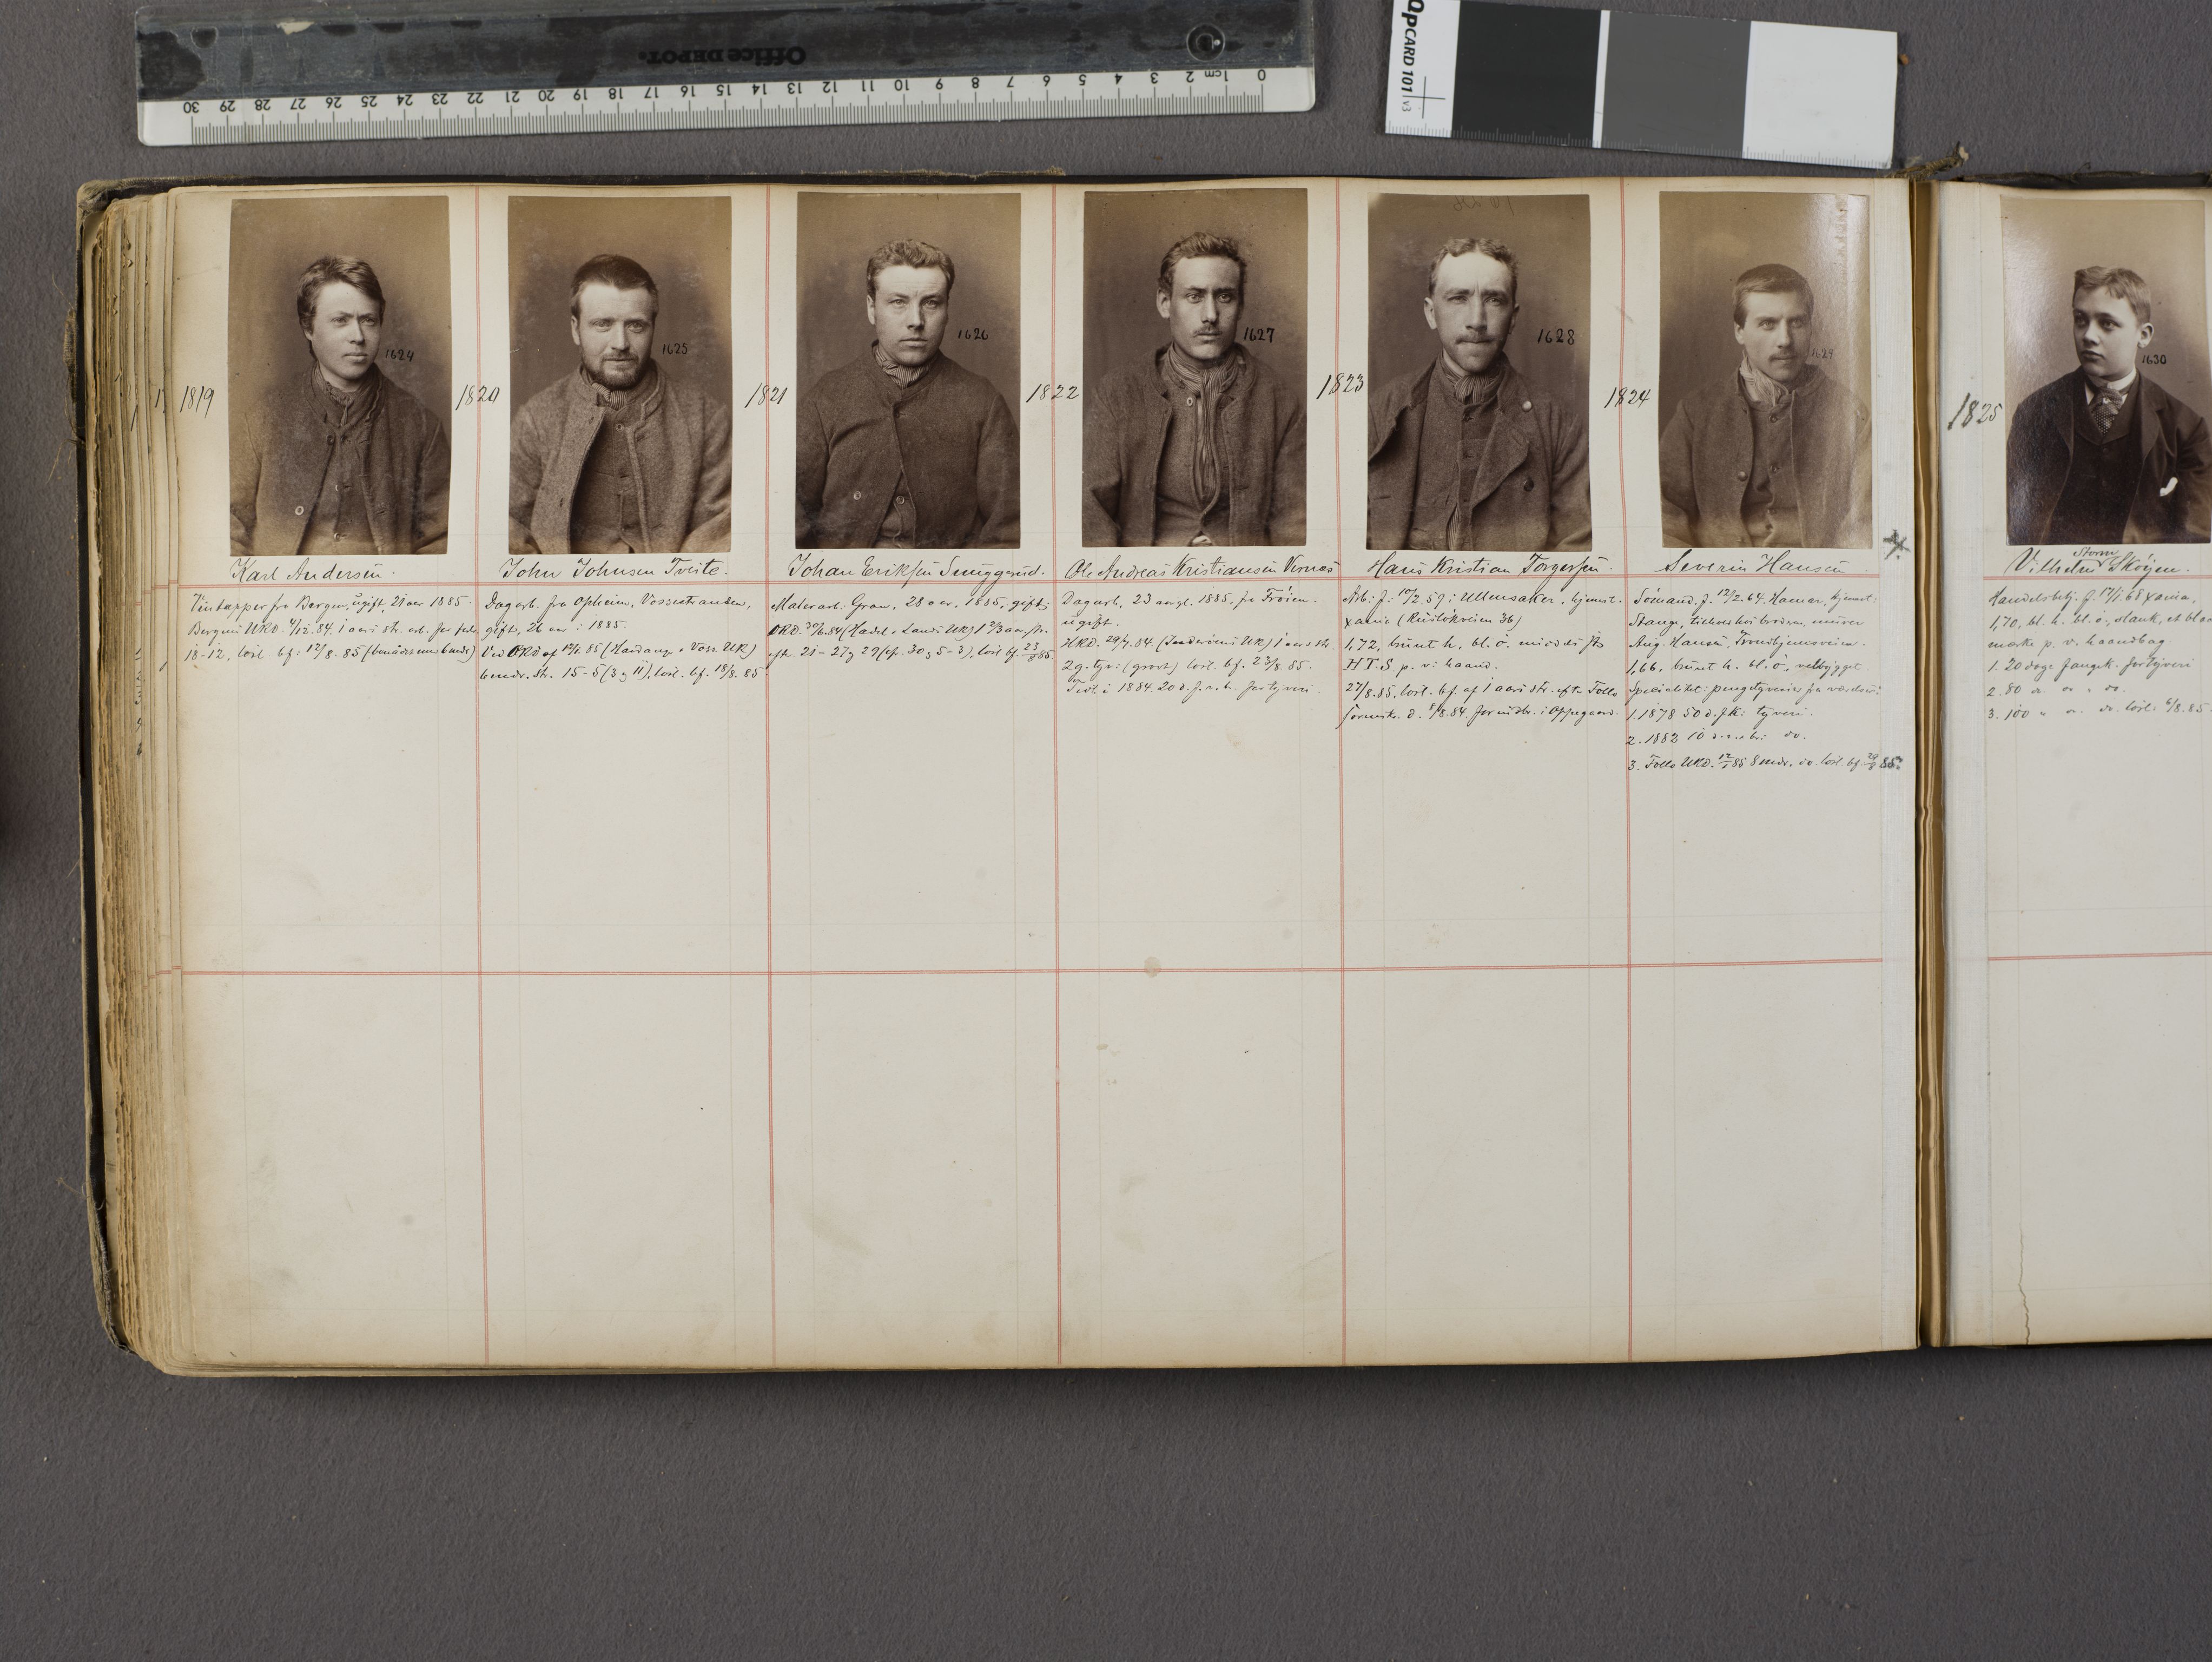 Office DEPOT.
0 1cm 2 3 4 5 6 7 8 9 10 11 12 13 14 15 16 17 18 19 20 21 22 23 24 25 26 27 28 29 30
QPCARD 101 v3
1819
1624
Karl Andersen.
Vintapper fra Bergen, ugift, 21 aar 1885.
Bergens UKD. 4/12.84. 1 aars str. arb. for
18-12, løsl. bf: 12/8.85 (benådet
1820
1625
John Johnsen Tveite.
Dagarb. fra Opheim, Vossestranden,
gift, 26 aar i 1885.
Ved OKD af (Hardang. o Voss. UK)
6 mdr. str. 15-5 (3 og 11), løsl. bf. 18/8.85.
1821
1626
Johan Eriksen Snuggerud.
Malerarb. Gran, 28 aar, 1885, gift,
OKD. 30/6.84 (Hadel. o Lands UK) 1 2/3 aar str.
eft. 21 - 27 og 29 (cf. 30 og 5-3), løsl. bf. 23/8 85.
1822
1627
Ole Andreas Kristiansen Vernes
Dagarb, 23 aar gl. 1885, fra Frøien.
ugift.
HRD. 29/7.84. UK) 1 aars str.
2g. tyv: (grovt) løsl. bf. 23/8.85.
Tidl. i 1884. 20 d. f. v. b. for tyveri.
1823
1628
Hans Kristian Torgersen.
Arb: f: 17/2.59 i Ullensaker, hjemst.
Xania (Ruseløkveien 36)
1,72, brunt h, bl. ø.
H T S p. v: haand.
27/8.85. løsl. bf. af 1 aars str. efter Follo
d. 8/8.84. for i Oppegaard.
1824
1629
Severin Hansen
Sømand, f. 12/2.64. Hamar, hjemst:
Stange, tilholds hos broderen, murer
Aug. Hansen, Trondhjemsveien.
1,66, brunt h. bl. ø, velbygget.
Specialitet: pengetyverier fra værelser:
1. 1878 50 d. f. K: tyveri.
2. 1882 10 do.
3. Follo UKD. 85 8 mdr. do. løsl. bf. 29/8 85.
1825
1630
Vilhelm Storm Skøyen.
Handelsbetj. f. 17/1.68 Xania,
1,70, bl. h. bl. ø, slank, et blaat
mærke p. v. haandbag
1. 20 dage fængsl. for tyveri
2. 80 do.
3. 100 " do. løsl. 6/8.85